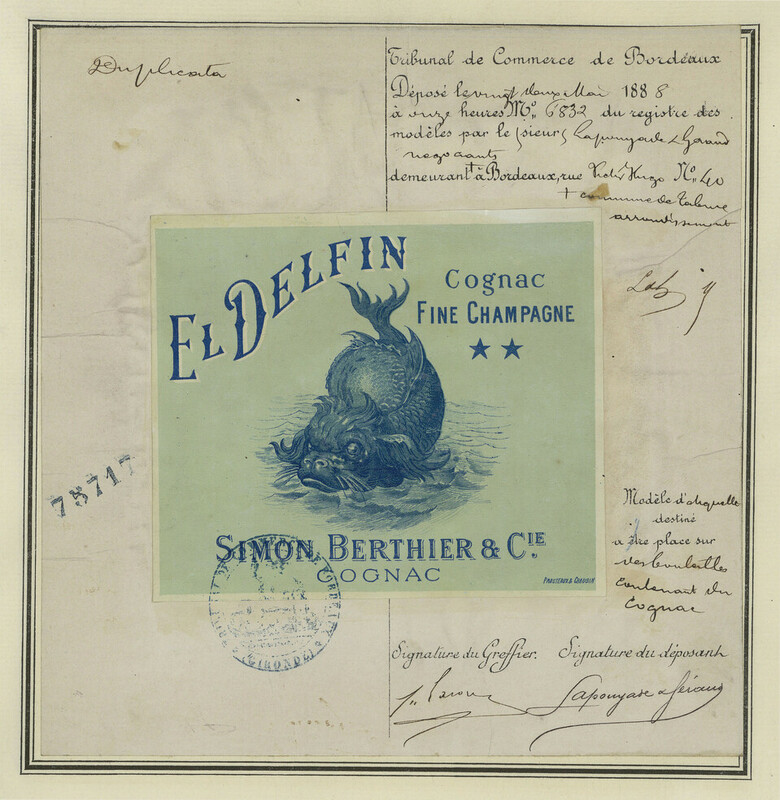 Duplicata
Tribunal de Commerce de Bordeaux
Déposé le vingt deux Mai 1888
à onze heures No. 6832 du registre des
modèles par le sieurs Laponyade & Géraud
négociants
demeurant à Bordeaux, rue Victor Hugo No. 40
+ commune de Talence
arrondissement
EL DELFIN
Cognac
FINE CHAMPAGNE
★★
75717
SIMON BERTHIER & CIE.
COGNAC
(GIRONDE)
Modèle d'étiquette
destiné
à être place sur
des bouteilles
contenant du
Cognac
Signature du Greffier.
Signature du déposant
Laponyade & Géraud